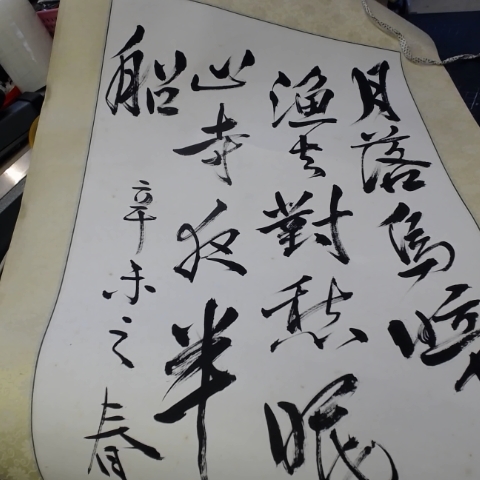 月落烏啼
漁火對愁眠
山寺夜半
船
辛未之春